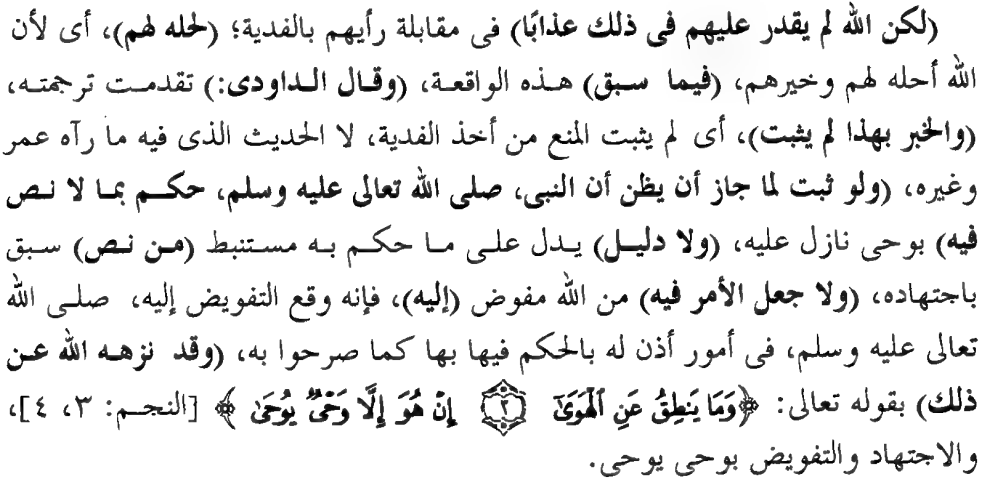 (لكن الله لم يقدر عليهم فى ذلك عذابًا) فى مقابلة رأيهم بالفدية؛ (لحله لهم)، أى لأن
الله أحله لهم وخيرهم، (فيما سبق) هذه الواقعة، (وقال الداودى:) تقدمت ترجمته،
(والخبر بهذا لم يثبت)، أى لم يثبت المنع من أخذ الفدية، لا الحديث الذى فيه ما رآه عمر
وغيره، (ولو ثبت لما جاز أن يظن أن النبى، صلى الله تعالى عليه وسلم، حكم بما لا نص
فيه) بوحى نازل عليه، (ولا دليل) يدل على ما حكم به مستنبط (من نص) سبق
باجتهاده، (ولا جعل الأمر فيه) من الله مفوض (إليه)، فإنه وقع التفويض إليه، صلى الله
تعالى عليه وسلم، فى أمور أذن له بالحكم فيها بها كما صرحوا به، (وقد نزهه الله عن
ذلك) بقوله تعالى: ﴿وَمَا يَنطِقُ عَنِ ٱلْهَوَىٰٓ ٣ إِنْ هُوَ إِلَّا وَحْىٌ يُوحَىٰ﴾ [النجم: ٣، ٤]،
والاجتهاد والتفويض بوحى يوحى.